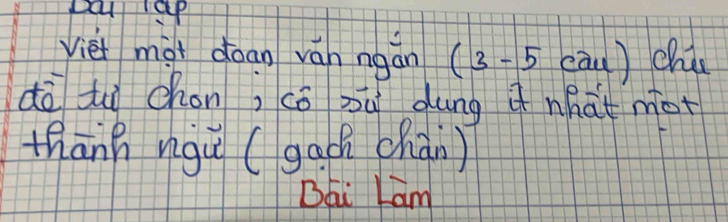 Bài tập
Viết một đoạn văn ngắn (3-5 câu) chủ
đề tự chọn, có sử dụng ít nhất một
thành ngữ (gạch chân)
Bài Làm